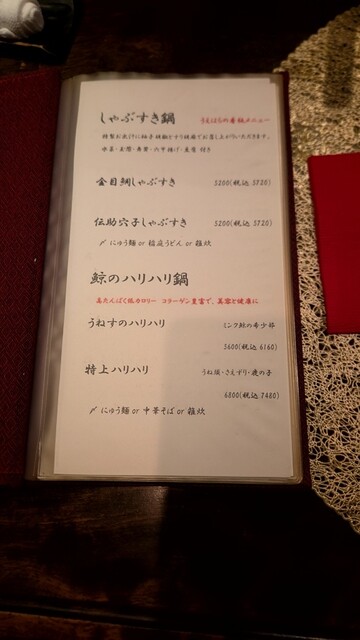 しゃぶすき鍋 うえはらの看板メニュー
特製お出汁に柚子胡椒をすり胡麻でお召し上がりいただきます。
水菜・玉葱・舞茸・六方揚げ・豆腐 付き
金目鯛しゃぶすき 5200(税込 5720)
伝助穴子しゃぶすき 5200(税込 5720)
〆 にゅう麺 or 稲庭うどん or 雑炊
鯨のハリハリ鍋
高たんぱく低カロリー コラーゲン豊富で、美容と健康に
うねすのハリハリ ミンク鯨の希少部
5600(税込 6160)
特上ハリハリ うね須・さえずり・鹿の子
6800(税込 7480)
〆 にゅう麺 or 中華そば or 雑炊